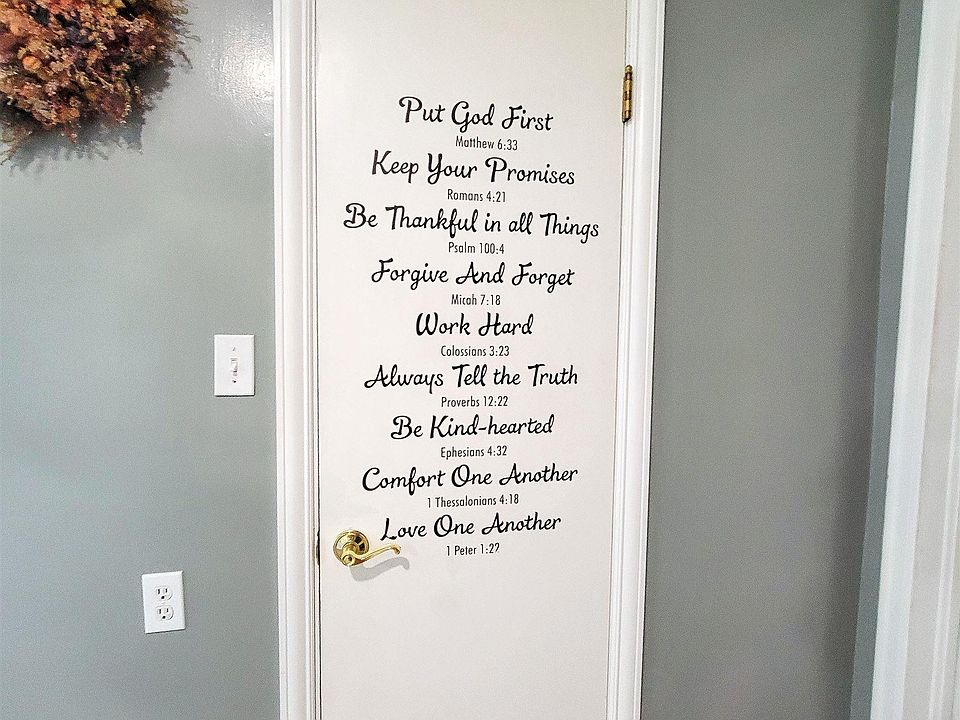 Put God First
Matthew 6:33
Keep Your Promises
Romans 4:21
Be Thankful in all Things
Psalm 100:4
Forgive And Forget
Micah 7:18
Work Hard
Colossians 3:23
Always Tell the Truth
Proverbs 12:22
Be Kind-hearted
Ephesians 4:32
Comfort One Another
1 Thessalonians 4:18
Love One Another
1 Peter 1:22